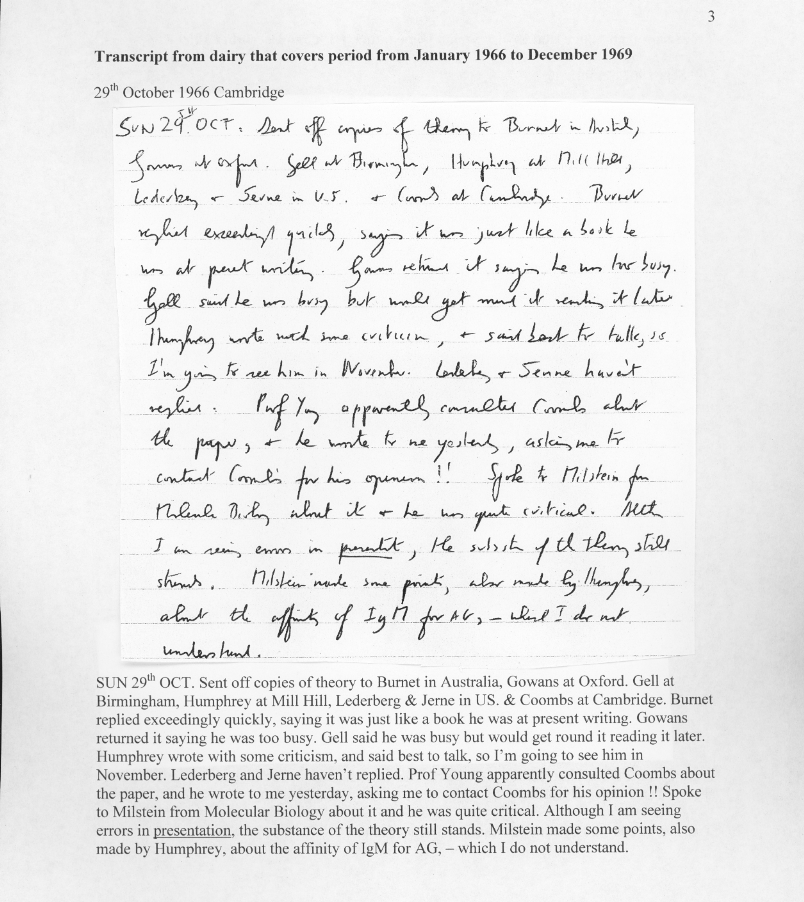 3
Transcript from dairy that covers period from January 1966 to December 1969
29th October 1966 Cambridge
SUN 29th OCT: Sent off copies of theory to Burnet in Austral,
Gowans at Oxford. Gell at Birmingham, Humphrey at Mill Hill,
Lederberg + Jerne in U.S. + Coombs at Cambridge. Burnet
replied exceedingly quickly, saying it was just like a book he
was at present writing. Gowans returned it saying he was too busy.
Gell said he was busy but would get round it reading it later
Humphrey wrote with some criticism, + said best to talk, so
I'm going to see him in November. Lederberg + Jerne haven't
replied. Prof Young apparently consulted Coombs about
the paper, + he wrote to me yesterday, asking me to
contact Coombs for his opinion !! Spoke to Milstein from
Molecular Biology about it + he was quite critical. Although
I am seeing errors in presentation, the substance of the theory still
stands. Milstein made some points, also made by Humphrey,
about the affinity of IgM for AG, – which I do not
understand.
SUN 29th OCT. Sent off copies of theory to Burnet in Australia, Gowans at Oxford. Gell at
Birmingham, Humphrey at Mill Hill, Lederberg & Jerne in US. & Coombs at Cambridge. Burnet
replied exceedingly quickly, saying it was just like a book he was at present writing. Gowans
returned it saying he was too busy. Gell said he was busy but would get round it reading it later.
Humphrey wrote with some criticism, and said best to talk, so I'm going to see him in
November. Lederberg and Jerne haven't replied. Prof Young apparently consulted Coombs about
the paper, and he wrote to me yesterday, asking me to contact Coombs for his opinion !! Spoke
to Milstein from Molecular Biology about it and he was quite critical. Although I am seeing
errors in presentation, the substance of the theory still stands. Milstein made some points, also
made by Humphrey, about the affinity of IgM for AG, – which I do not understand.